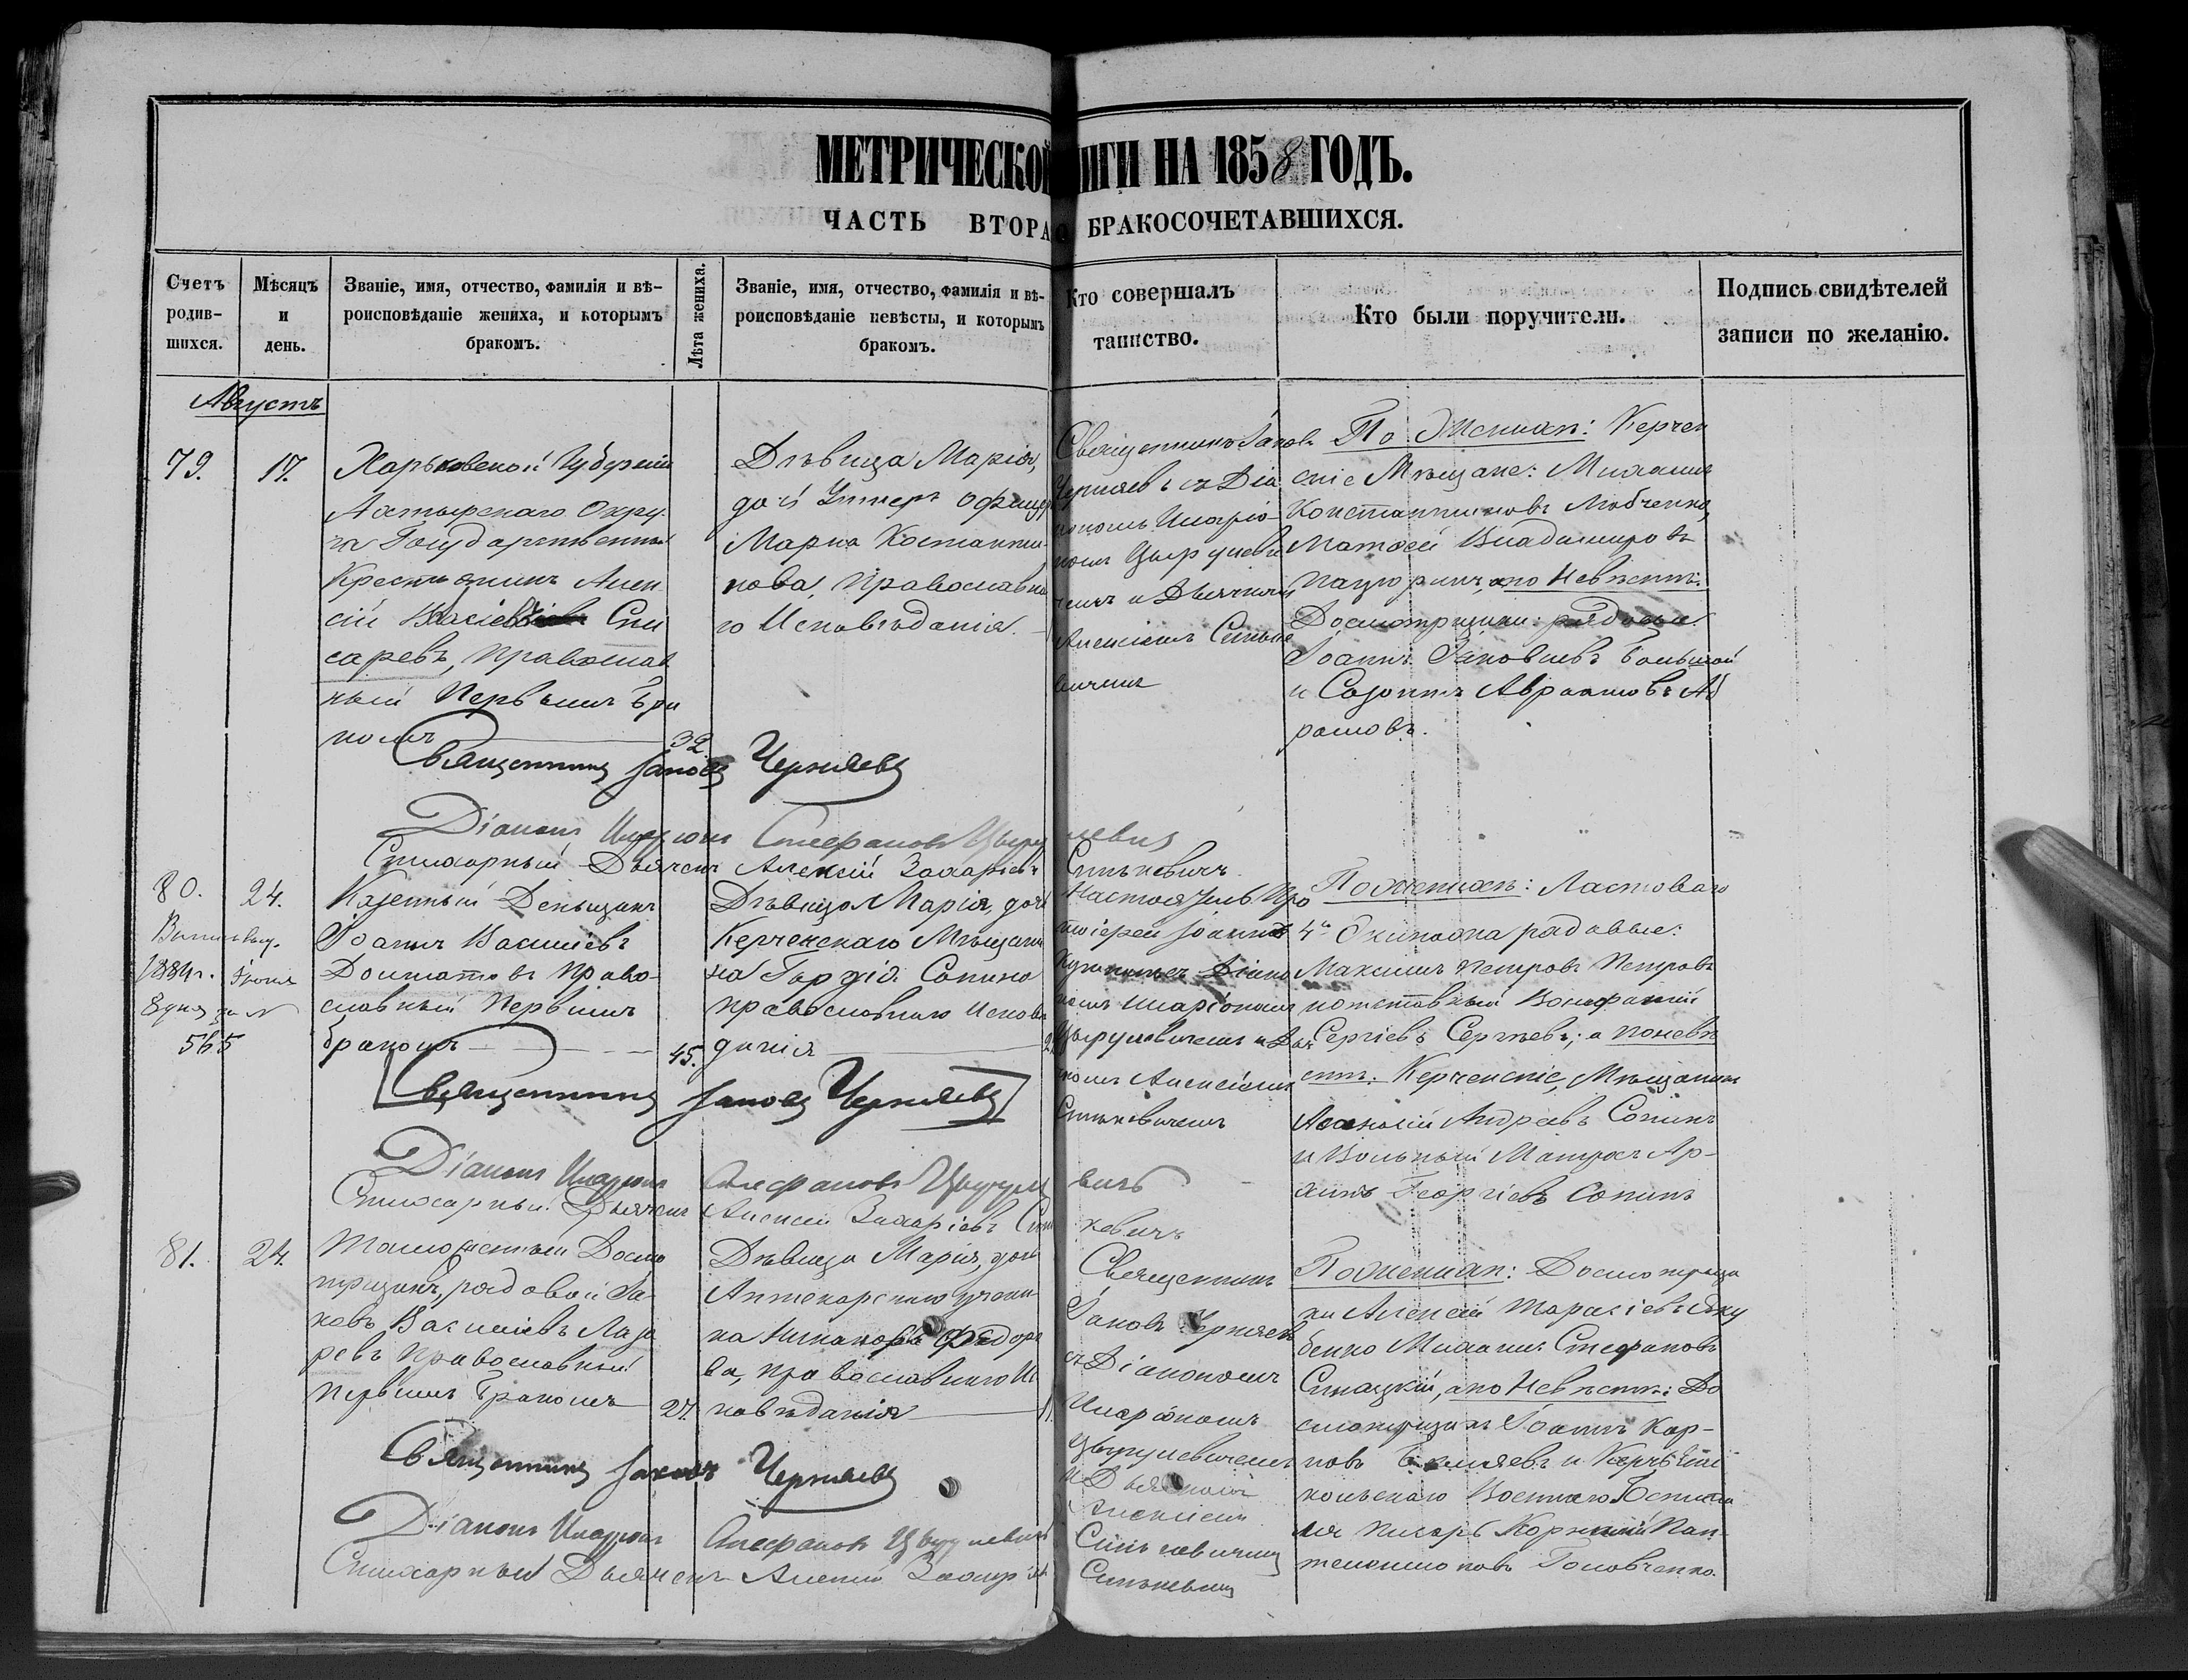 МЕТРИЧЕСКОЙ ИГИ НА 1858 ГОДЪ.
ЧАСТЬ ВТОРА О БРАКОСОЧЕТАВШИХСЯ.
Счетъ
родив-
шихся.
Мѣсяцъ
и
день.
Званіе, имя, отчество, фамилія и вѣ-
роисповѣданіе жениха, и которымъ
бракомъ.
Лѣта жениха.
Званіе, имя, отчество, фамилія и вѣ-
роисповѣданіе невѣсты, и которымъ
бракомъ.
Кто совершалъ
таинство.
Кто были поручители.
Подпись свидѣтелей
записи по желанію.
Августъ
79.
17.
Харьковской Губерніи
Ахтырскаго Окру-
га Государственный
Крестьянинъ Алек
сій Сли
саревъ, православ
ный Первымъ бра
комъ
32
Дѣвица Марія,
дочь Унтеръ Офицера
Марка Костанти-
нова, Православна
го Исповѣданія.
Священникъ Іаковъ
Черняевъ съ Діа
кономъ Иларіо-
номъ Цыруле
чемъ и Дьячкомъ
Алексіемъ Синьке
вичемъ
По Женихѣ: Керчен
скіе Мѣщане: Михаилъ
Константиновъ Любченко,
Матѳей Владиміровъ
а по Невѣстѣ:
Досмотрщики рядовые:
Іоаннъ Яковлевъ Большой
и Созонтъ Авраамовъ Аб
рамовъ.
Священникъ Іаковъ Черняевъ
Діаконъ Иларіонъ Стефановъ Цырулевичъ
Стихарный Дьячекъ Алексій Захаріевъ Синькевичъ
80.
24.
1884г. Іюня
8 дня за №
565
Казенный Деньщикъ
Іоаннъ Василіевъ
Долматовъ Право-
славный Первымъ
бракомъ
45.
Дѣвица Марія, дочь
Керченскаго Мѣщани
на Георгія Сопина
православнаго Исповѣ
данія
Настоятель Про
тоіерей Іоаннъ
Діако
номъ Иларіономъ
Цырулевичемъ и Дья
комъ Алексіемъ
Синькевичемъ
По женихѣ: Ластоваго
4го Экипажа рядовые:
Максимъ Петровъ Петровъ
Вонифатій
Сергіевъ Сергѣевъ; а по невѣ
стѣ: Керченскіе, Мѣщанинъ
Аѳанасій Андреевъ Сопинъ
и Вольный Матросъ Ар-
Георгіевъ Сопинъ
Священникъ Іаковъ Черняевъ
Діаконъ Иларіонъ Стефановъ Цырулевичъ
Стихарный Дьячекъ Алексій Захаріевъ Синькевичъ
81.
24.
Таможенный Досмо
трщикъ, рядовой Іа
ковъ Василіевъ Лаза
ревъ Православный
первымъ бракомъ
27.
Дѣвица Марія, дочь
Аптекарскаго учени
ка Никанора Ѳедоро
ва, православнаго Ис
повѣданія
Священникъ
Іаковъ Черняевъ
съ Діакономъ
Иларіономъ
Цырулевичемъ
и Дьячкомъ
Алексіемъ
Синькевичемъ
По женихѣ: Досмотрщи
ки Алексій Тарасіевъ
бенко Михаилъ Стефановъ
а по Невѣстѣ: До
смотрщикъ Іоаннъ Кар-
повъ и Керчь Ени
кольскаго Военнаго Госпита
ля писарь Корнилій Пан-
телеимоновъ Головченко.
Священникъ Іаковъ Черняевъ
Діаконъ Иларіонъ Стефановъ Цырулевичъ
Стихарный Дьячекъ Алексій Захаріевъ Синькевичъ